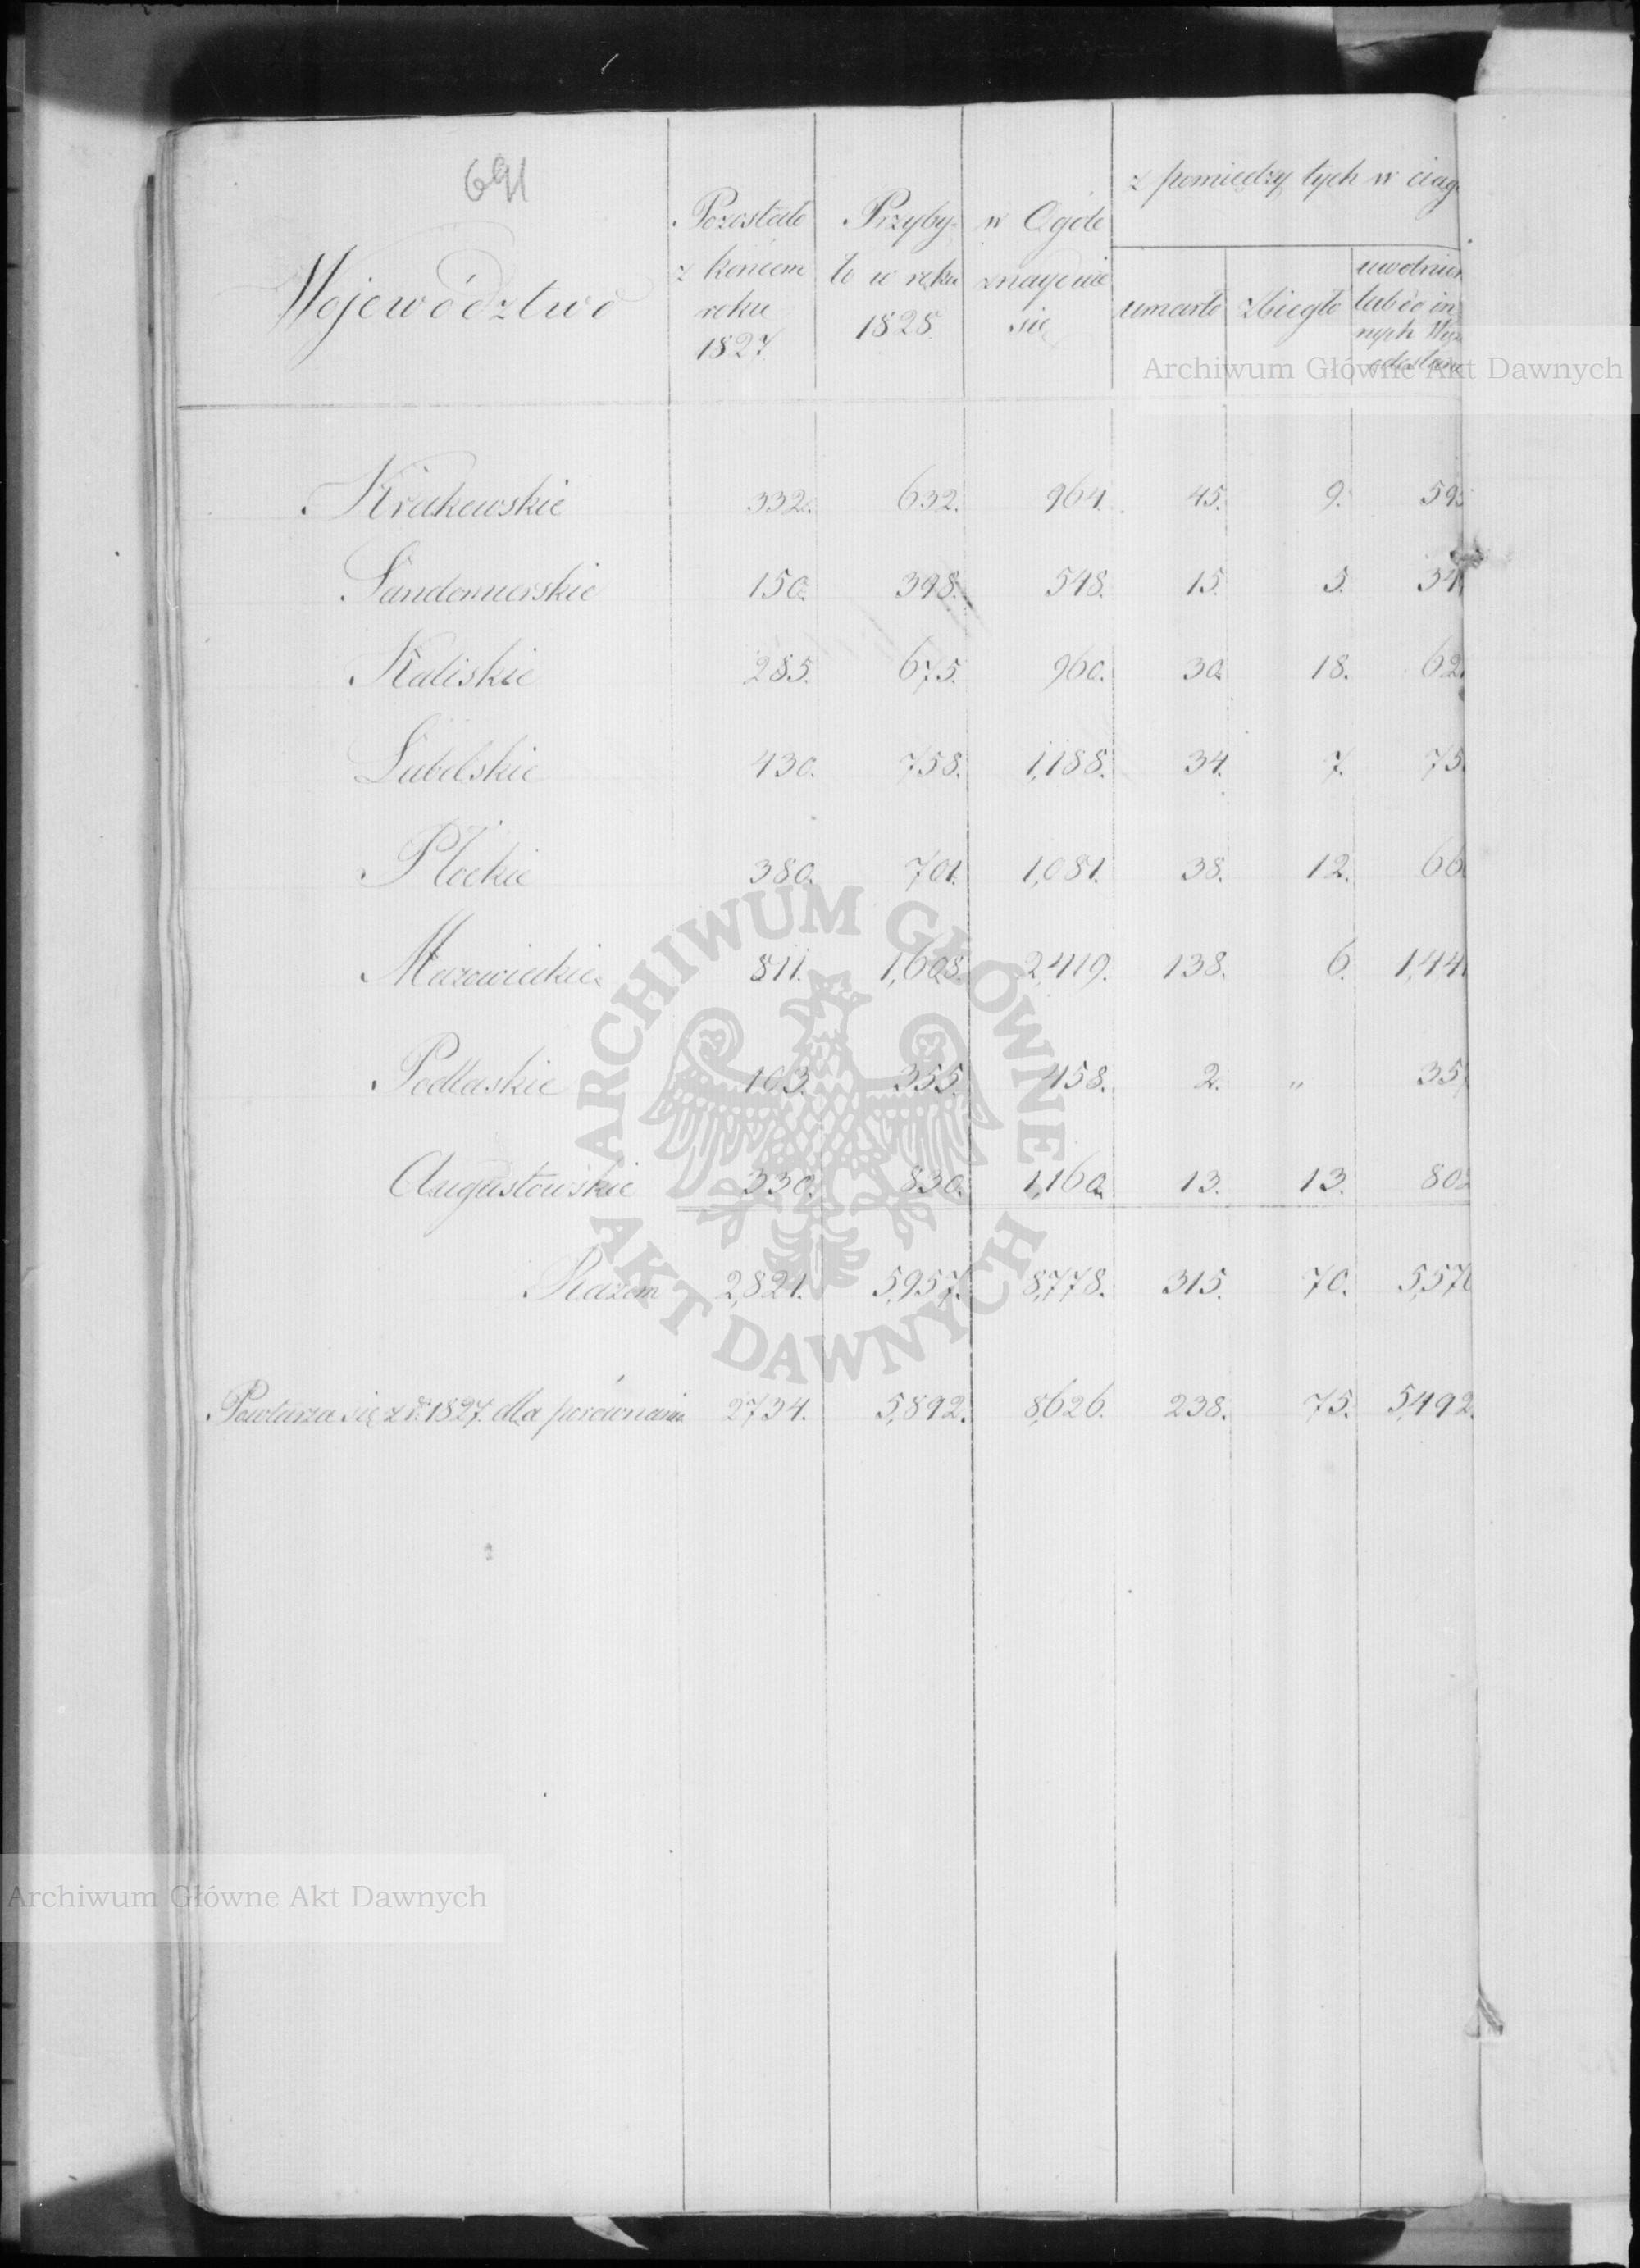 691
Województwo
Pozostało
z końcem
roku
1827.
Przyby-
ło w roku
1828
w Ogóle
znayduie
się
z pomiędzy tych w ciąg
umarło
zbiegło
lub do in-
nych
Krakowskie 332. 632. 964. 45. 9. 595
Sandomierskie 150. 398. 548. 15. 5. 34
Kaliskie 285. 675. 960. 30. 18. 62
Lubelskie 430. 758. 1,188. 34. 7. 75
Płockie 380. 701. 1,081. 38. 12. 66
Mazowieckie 811. 1,608. 2,419. 138. 6. 1,44
Podlaskie 103. 355. 458. 2. „ 35
Augustowskie 330. 830. 1,160. 13. 13. 80
Razem 2,821. 5,957. 8,778. 315. 70. 5,57
Powtarza się z r. 1827. dla porównania 2734. 5,892. 8,626. 238. 75. 5,492.
Archiwum Główne Akt Dawnych
ARCHIWUM GŁÓWNE
AKT DAWNYCH
Archiwum Główne Akt Dawnych